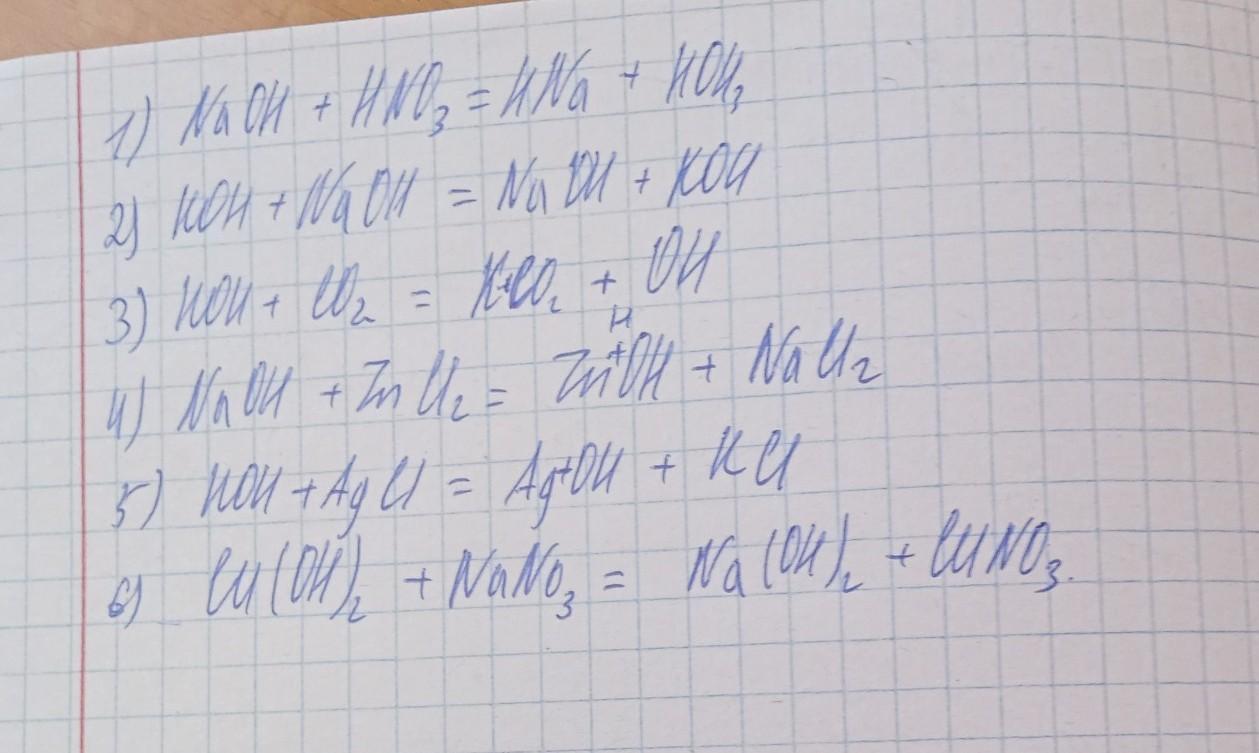 1) NaOH + HNO₃ = HNa + HOH₃
2) KOH + NaOH = NaOH + KOH
3) KOH + CO₂ = K+CO₂ + OH
H
4) NaOH + ZnCl₂ = Zn+OH + NaCl₂
5) KOH + AgCl = Ag+OH + KCl
6) Cu(OH)₂ + NaNO₃ = Na(OH)₂ + CuNO₃.